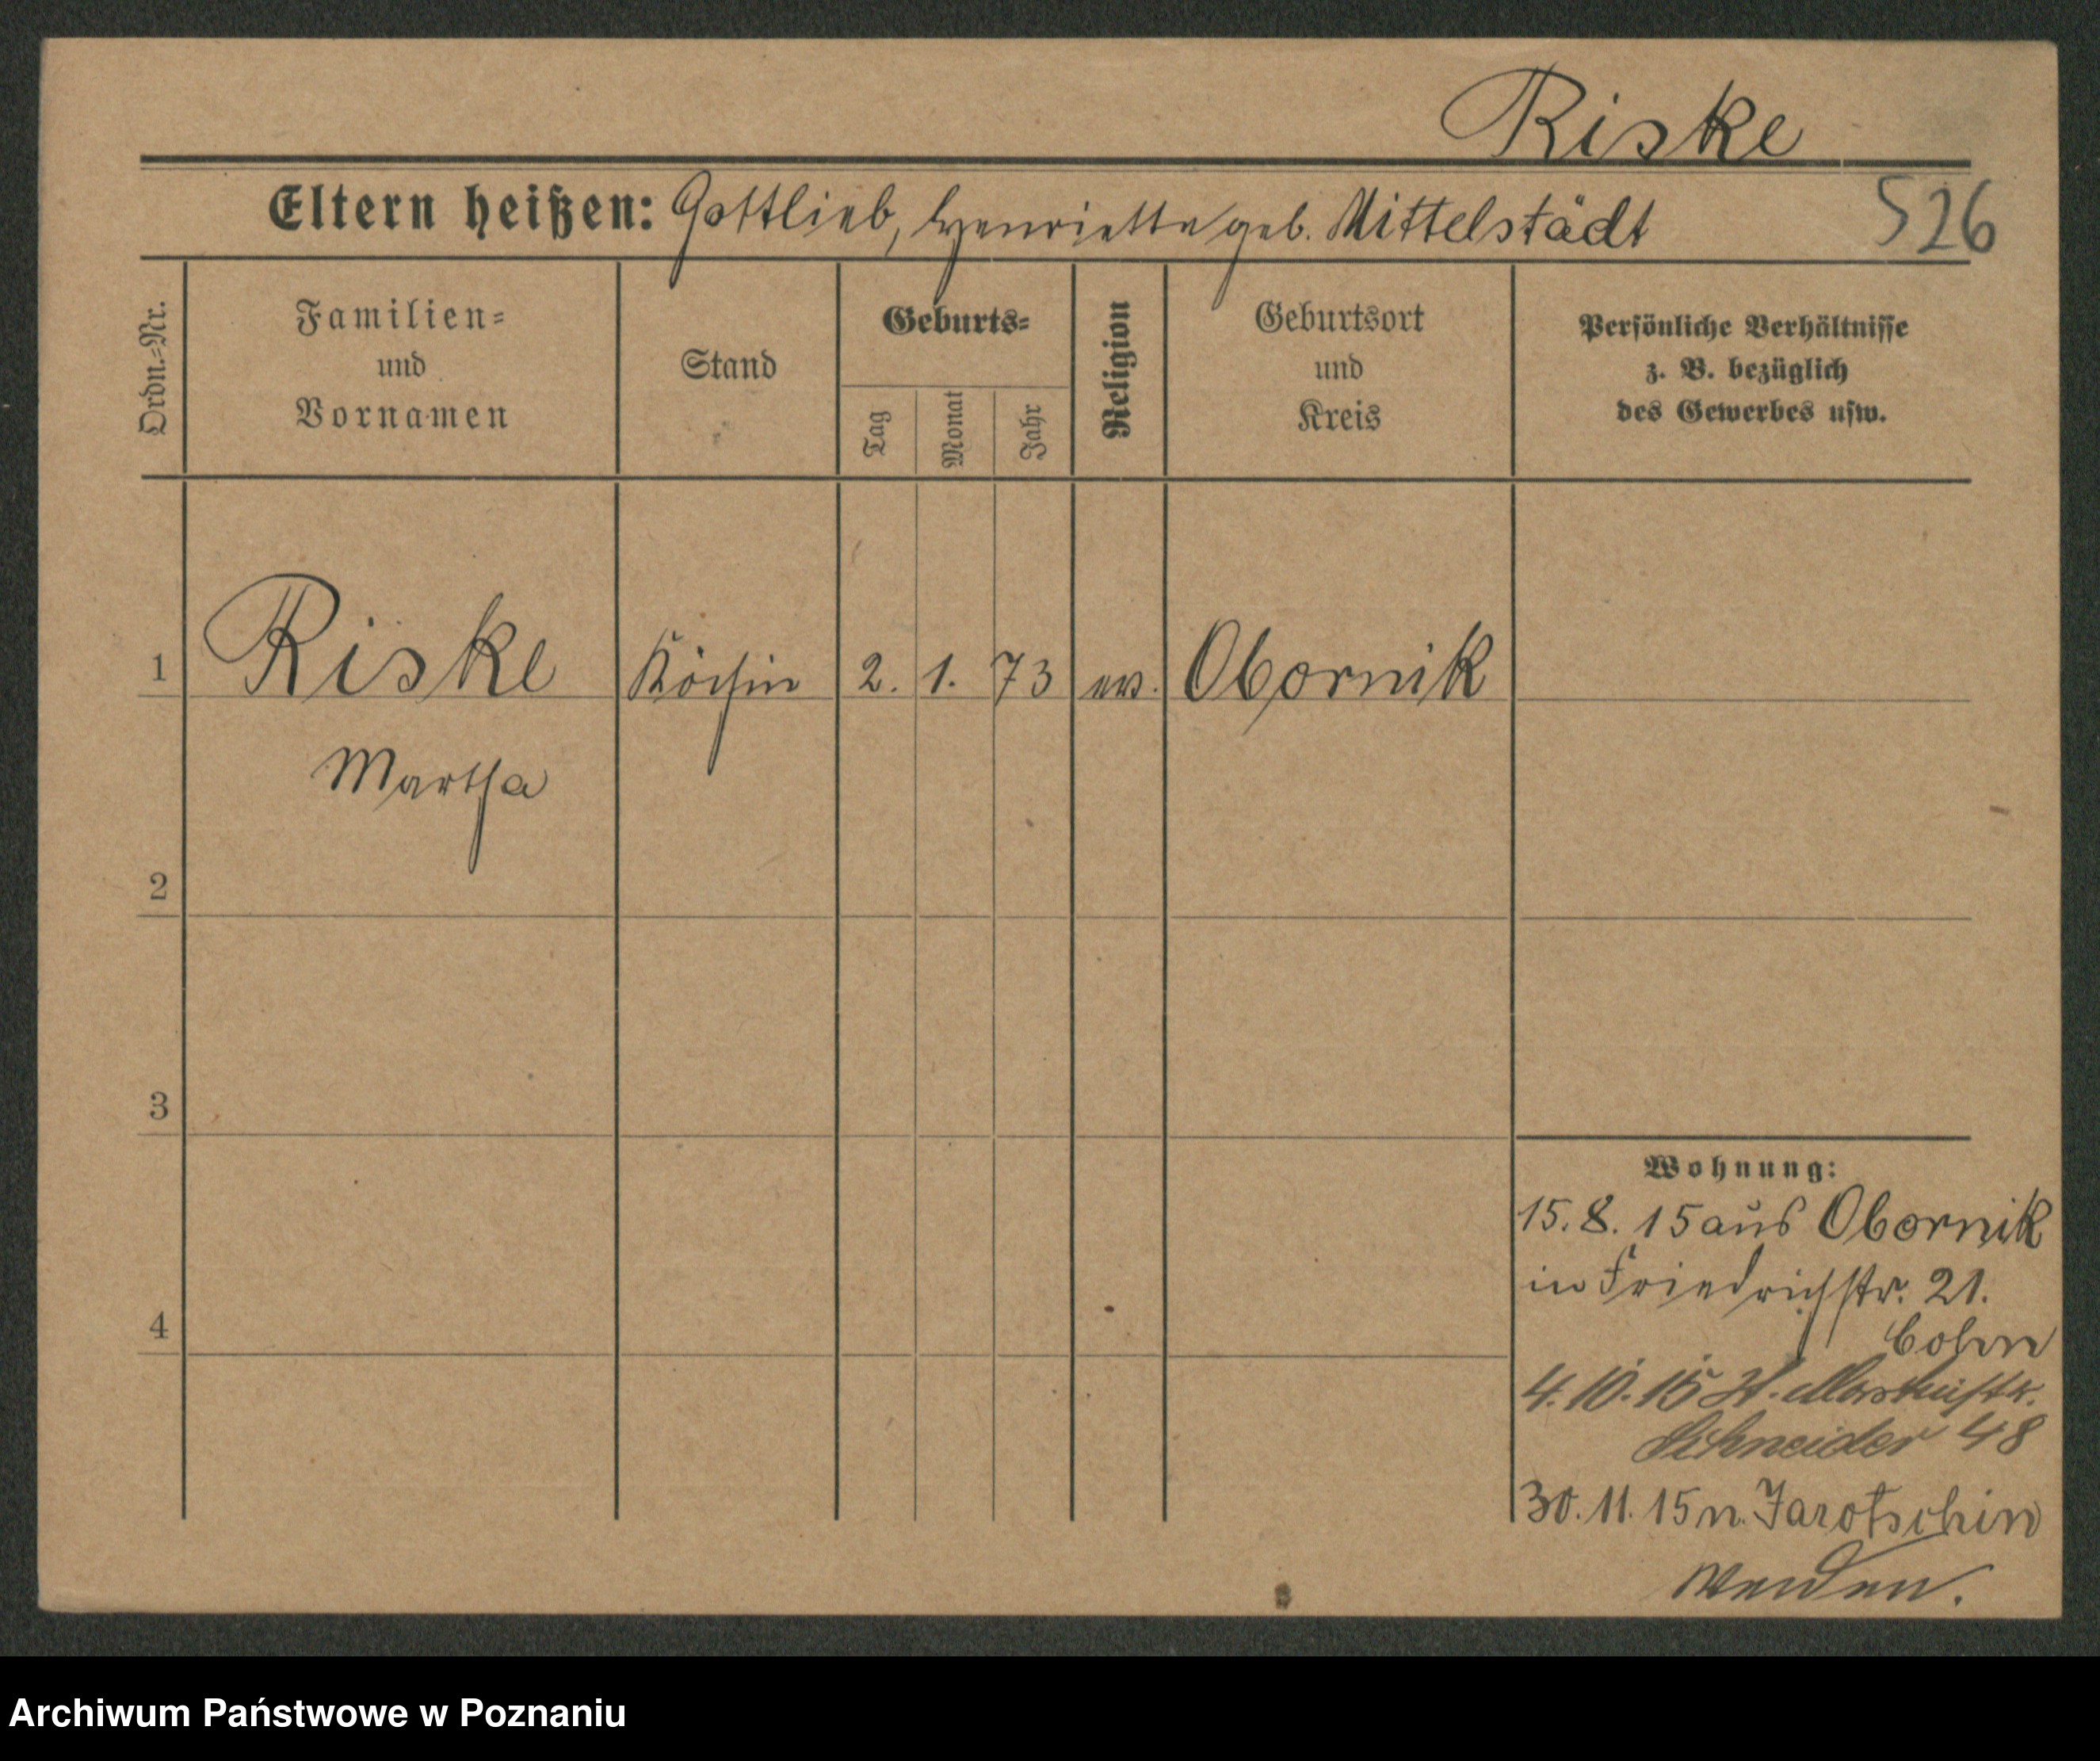 Riske
Eltern heißen: Gottlieb, Henriette geb. Mittelstädt
526
Ordn.-Nr.
Familien- und Vornamen
Stand
Geburts-
Tag
Monat
Jahr
Religion
Geburtsort und Kreis
Persönliche Verhältnisse
z. B. bezüglich
des Gewerbes usw.
1 Riske Köchin 2. 1. 73 ev. Obornik
Martha
2
3
4
Wohnung:
15. 8. 15 aus Obornik
in Friedrichstr. 21.
Cohn
4. 10. 15
Schneider 48
30. 11. 15 n. Jarotschin
Archiwum Państwowe w Poznaniu